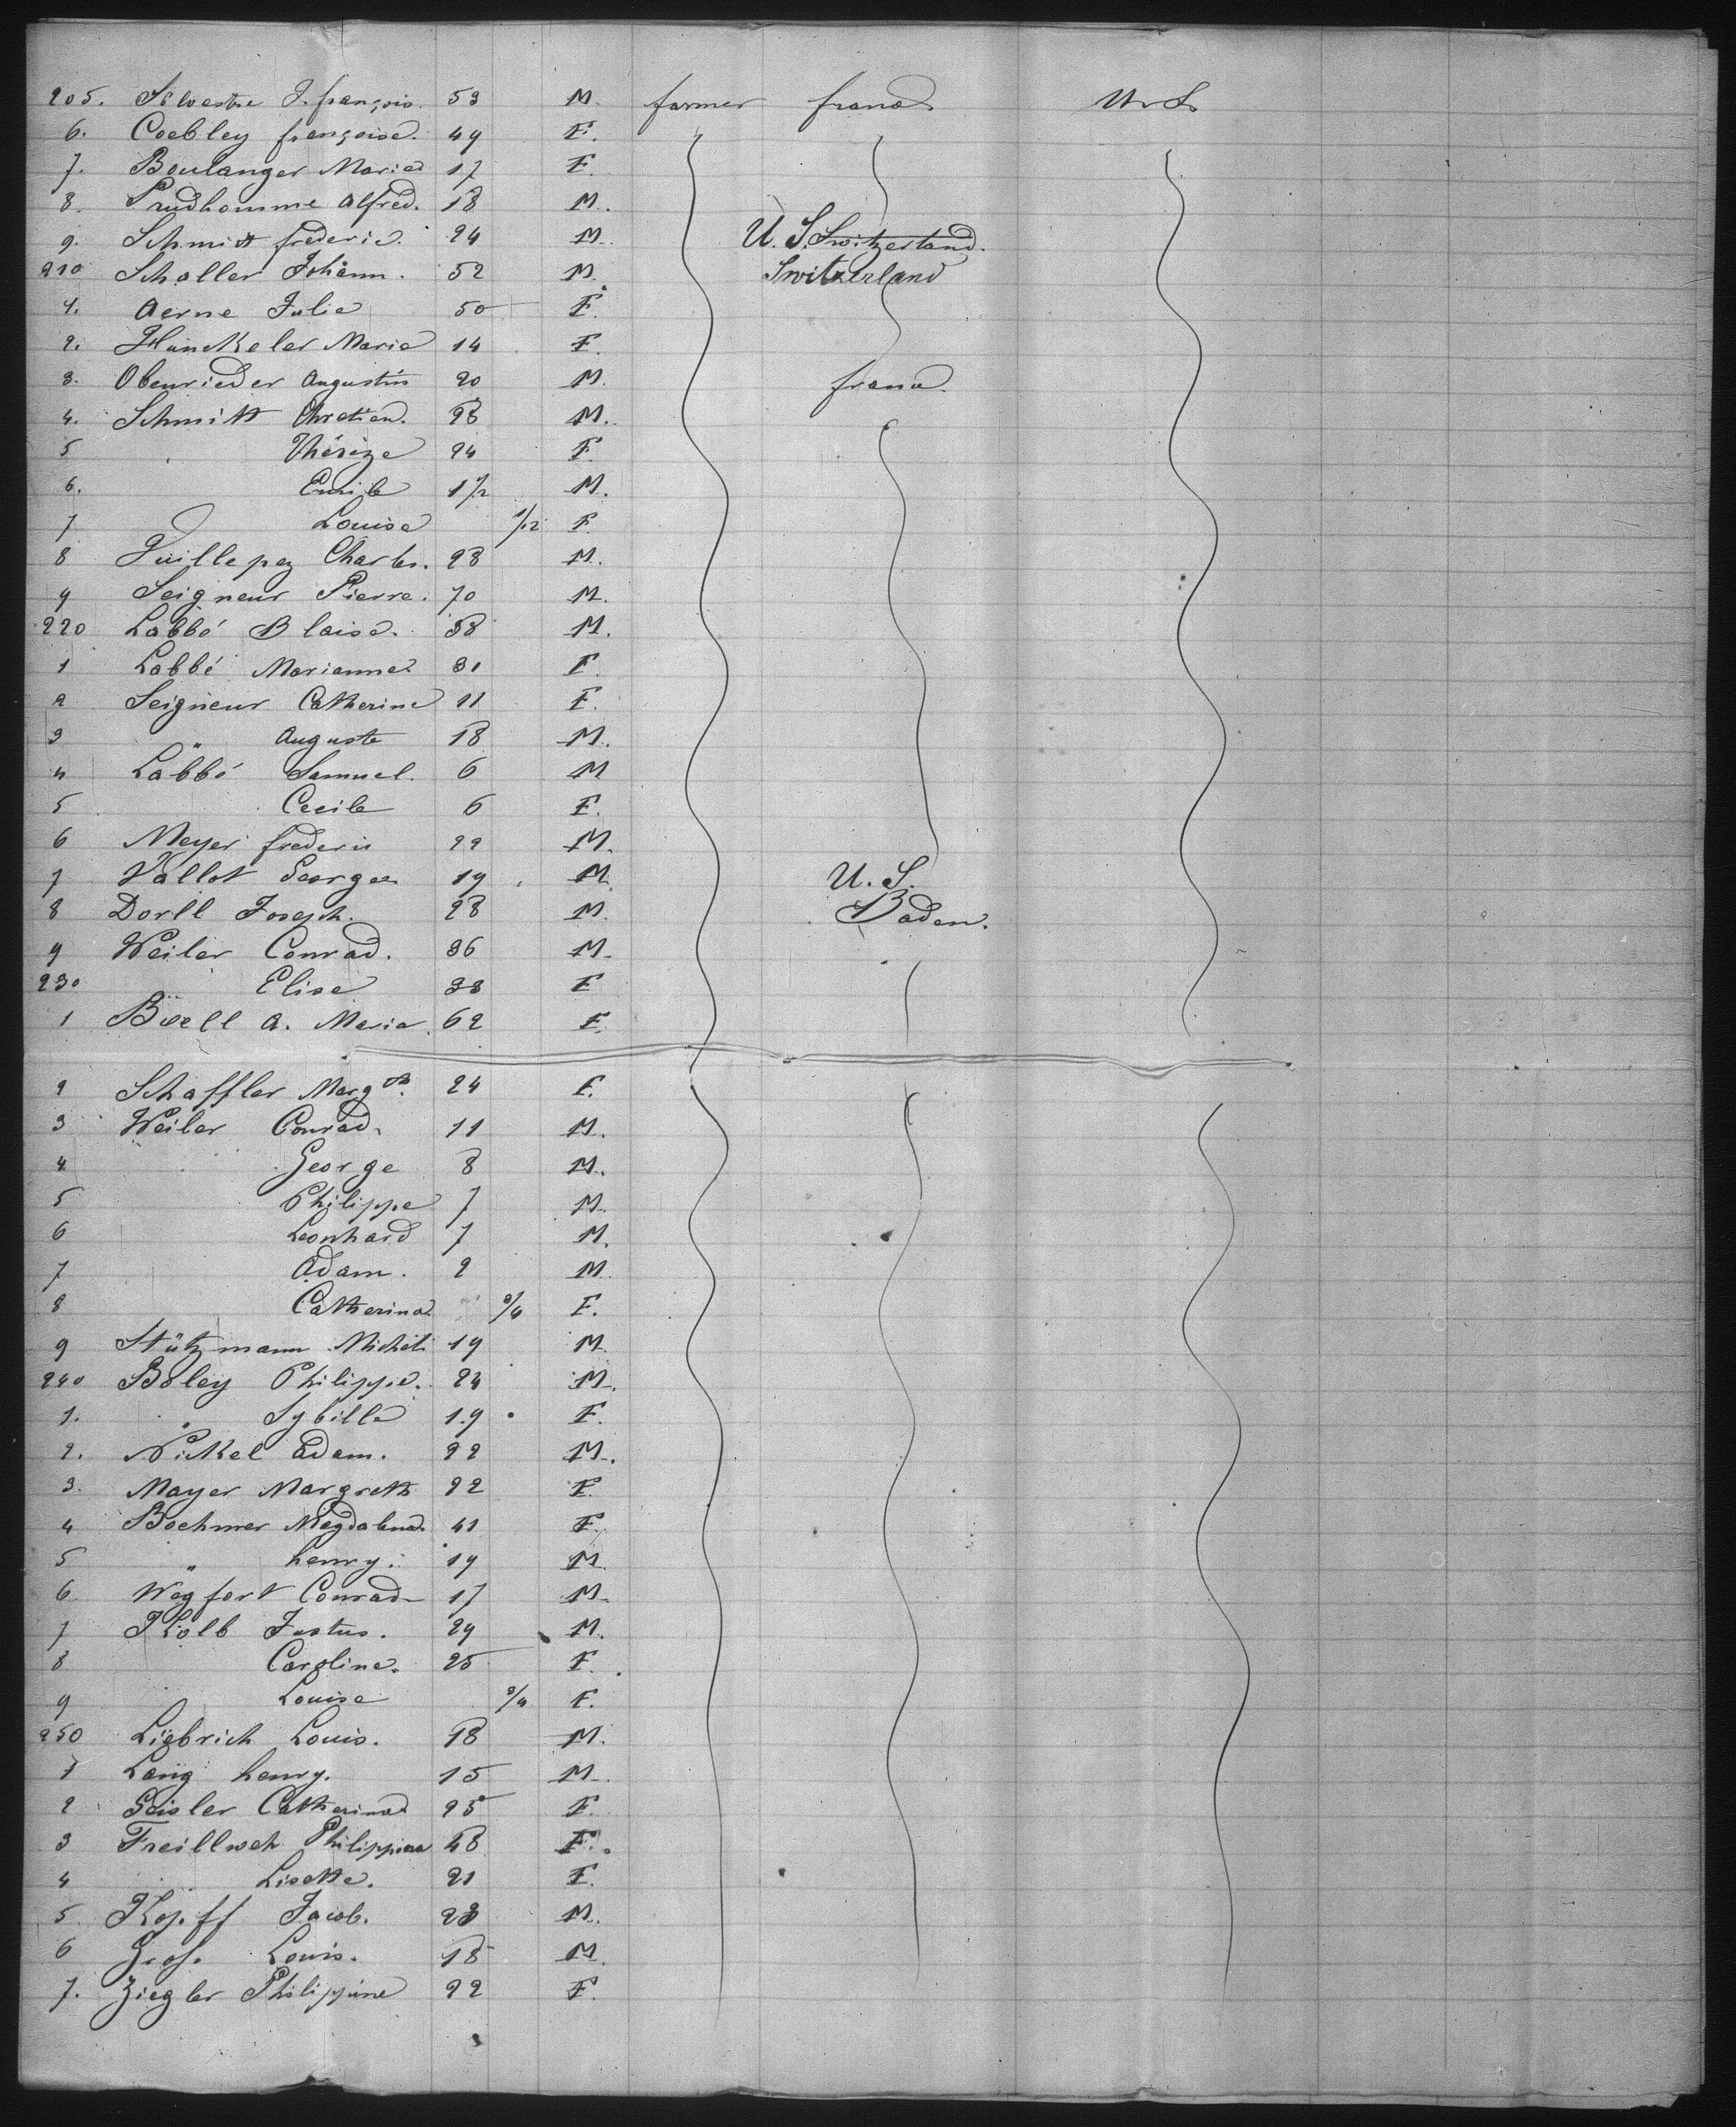 205. Silvestre J. françois. 53 M. farmer france U. S.
6. Coebley françoise. 49 F.
7. Boulanger Marie 17 F.
8. Prudhomme Alfred. 18 M.
9. Schmitt frederic. 24 M. U. S. Switzerland.
210 Schaller Johann. 52 M. Switzerland
1. Aerne Julie 50 F.
2. Hunckeler Marie 14 F.
3. Obenrieder Augustin 20 M. france.
4. Schmitt Chretien. 28 M.
5 Thérèze 24 F.
6. Emile 1 1/2 M.
7 Louise 1/12 F
8 Vuillepez Charles. 23 M.
9 Seigneur Pierre. 70 M.
220 Labbé Blaise. 38 M.
1 Labbé Marianne 31 F.
2 Seigneur Catherine 11 F.
3 " Auguste 18 M.
4 Labbé Samuel. 6 M
5 Cecile 6 F.
6 Meyer frederic 22 M.
7 Vallot George 19 M. U. S.
8 Dorll Joseph. 28 M. Baden.
9 Weiler Conrad. 36 M.
230 Elise 38 F
1 Boell A. Maria 62 F.
2 Schaffler Margth. 24 F.
3 Weiler Conrad. 11 M.
4 George 8 M.
5 Philippe 7 M.
6 Leonhard 7 M.
7 Adam. 2 M.
8 Catherina 3/4 F.
9 Stützmann Michel 19 M.
240 Boley Philippe. 24 M.
1. " Sybille 19 F.
2. Nickel Adam. 22 M.
3. Mayer Margreth 22 F.
4 Boehmer Magdalena 41 F.
5 " henry. 19 M.
6 Wegfort Conrad 17 M.
7 Kolb Justus. 29 M.
8 Caroline. 25 F.
9 Louise 3/4 F.
250 Liebrich Louis. 18 M.
1 Lang henry. 15 M.
2 Geisler Catherina 25 F.
3 Freillweh Philippina 48 F.
4 Lisette. 21 F.
5 Kopff Jacob. 23 M.
6 Grof. Louis. 18 M.
7. Ziegler Philippine 22 F.